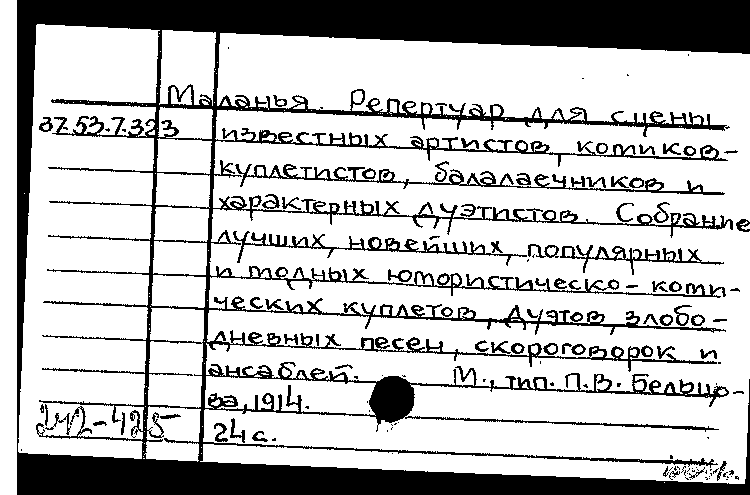 Маланья. Репертуар для сцены
37.53.7.323 известных артистов, комиков-
куплетистов, балалаечников и
характерных дуэтистов. Собрание
лучших, новейших, популярных
и модных юмористическо-коми-
ческих куплетов, дуэтов, злобо-
дневных песен, скороговорок и
ансаблей. М., тип. П.В. Бельцо-
ва, 1914.
242-425 24 с.